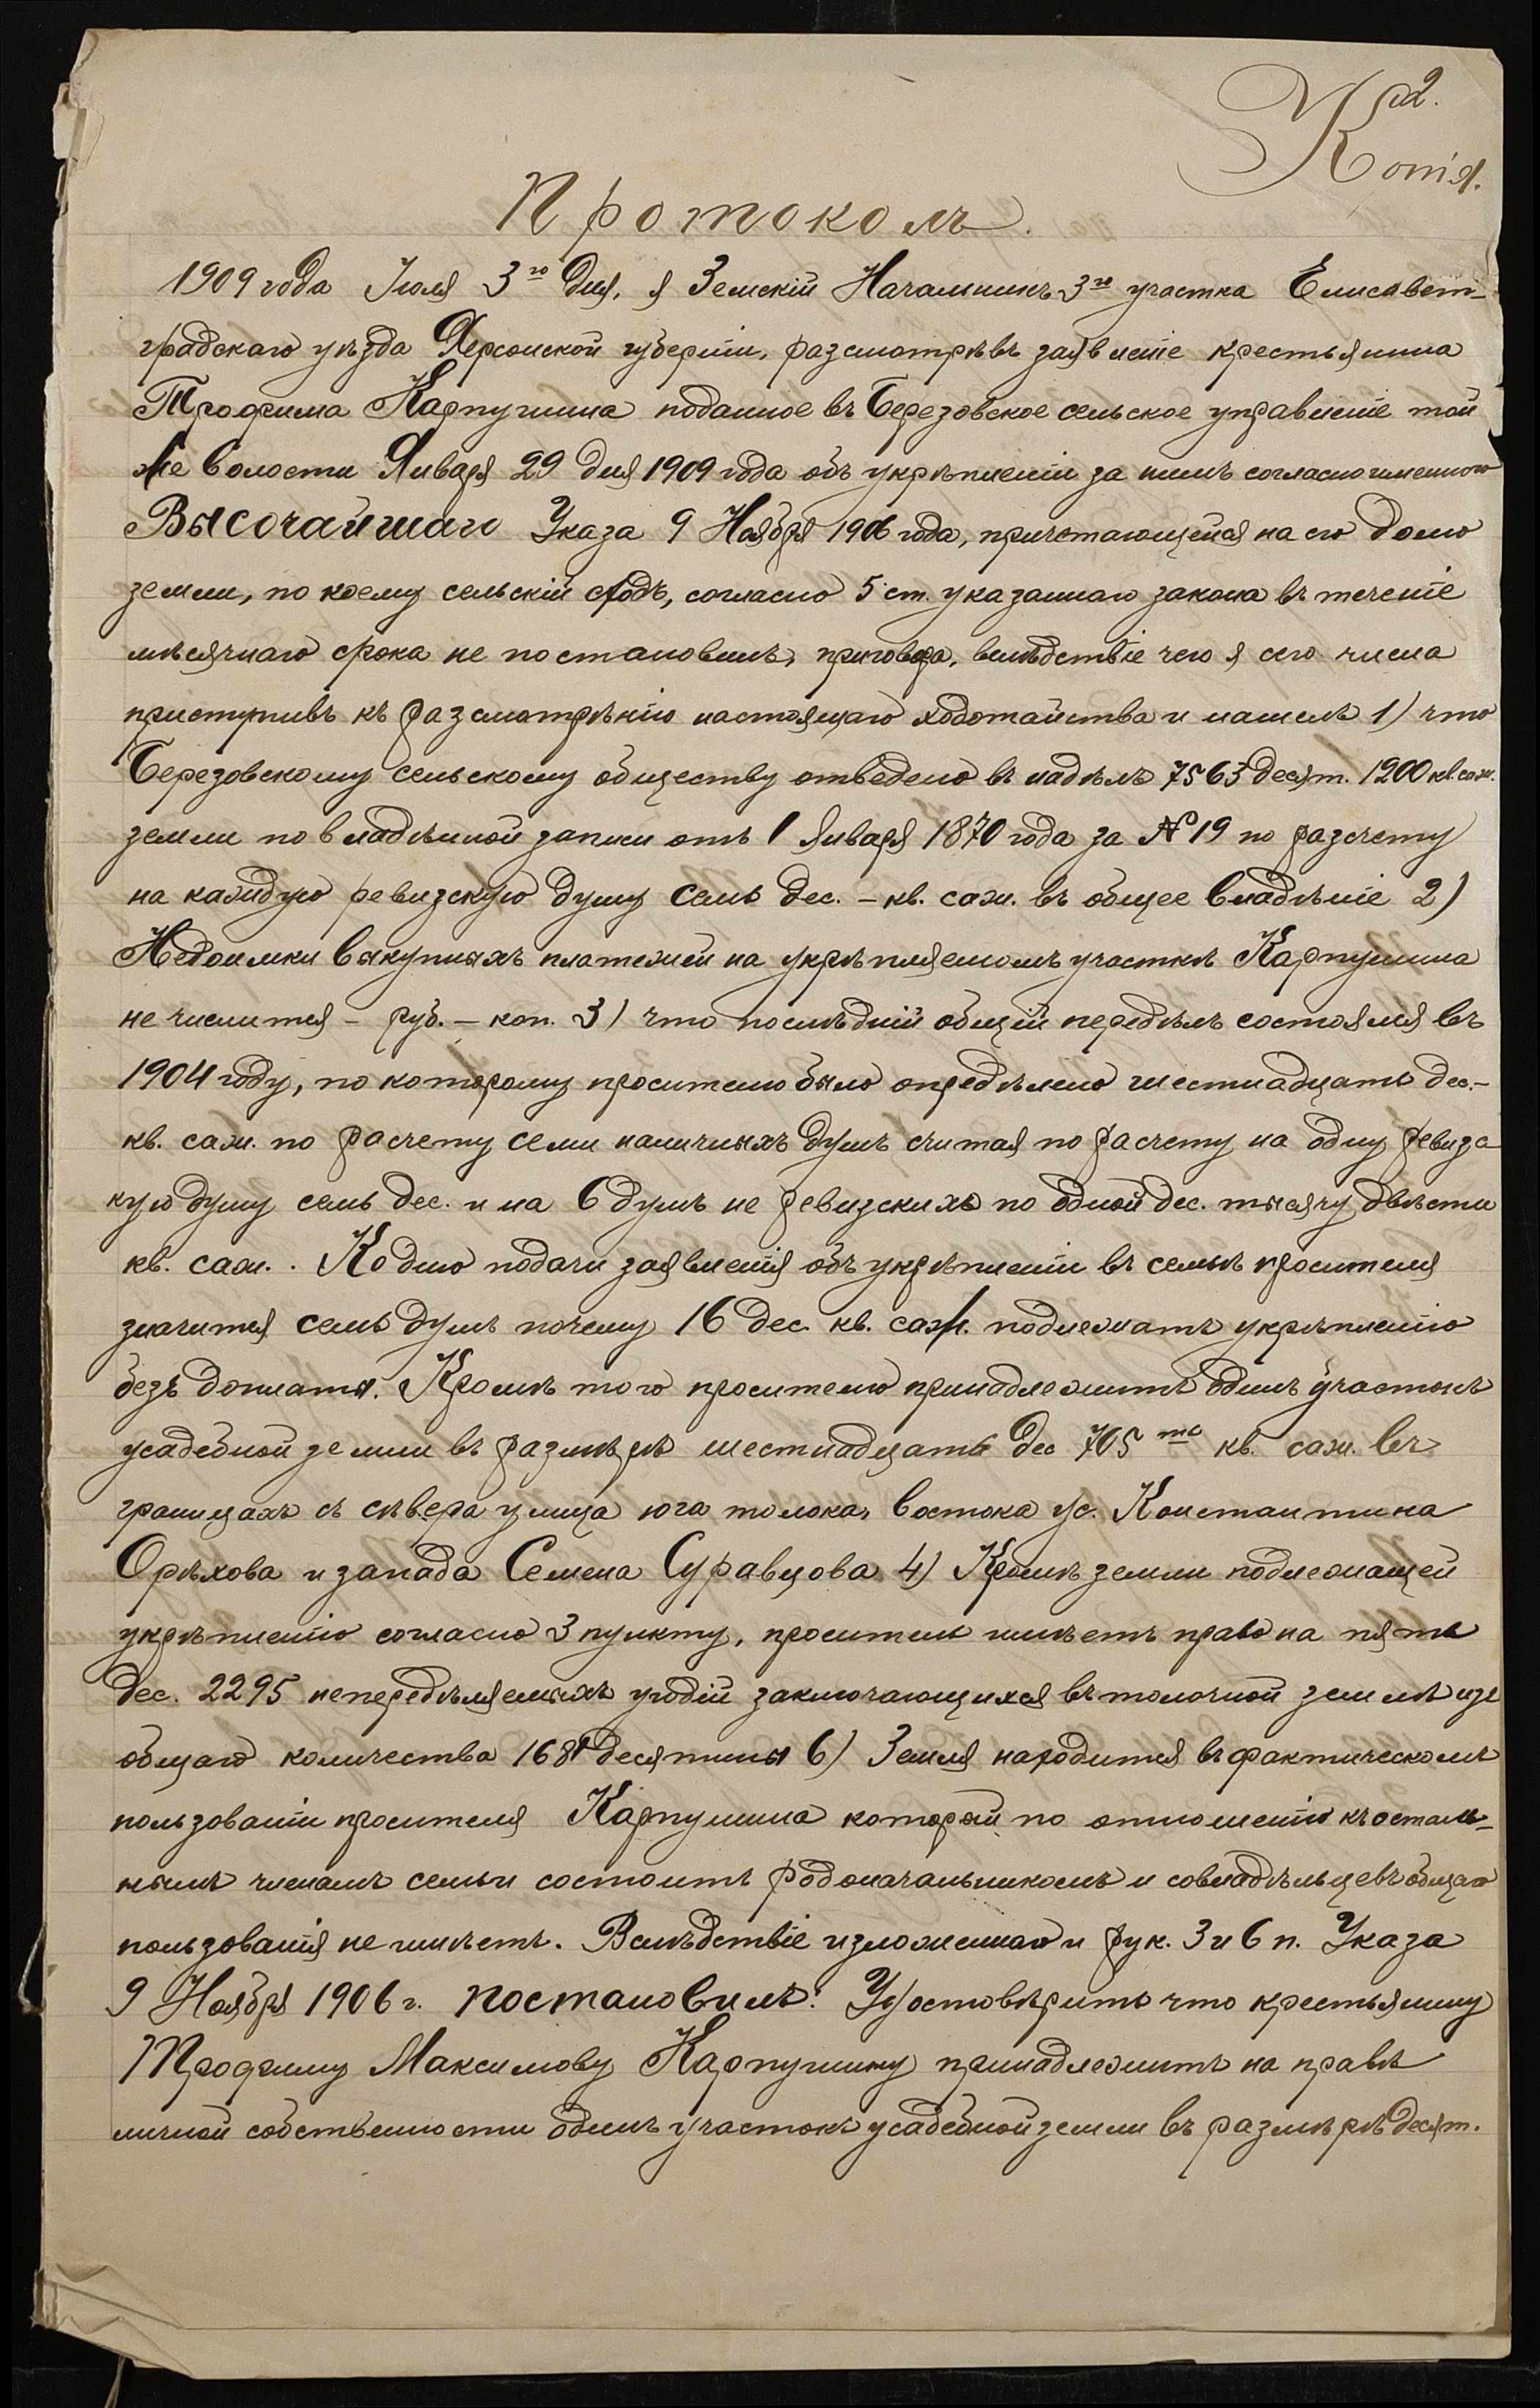 2.
Копія.
Протоколъ.
1909 года Іюля 3го дня, я Земскій Начальникъ 3го участка Елисавет-
градскаго уѣзда Херсонской губерніи, разсмотрѣвъ заявленіе крестьянина
Трофима Карпушина поданное въ Березовское сельское управленіе той
же волости Января 29 дня 1909 года объ укрѣпленіи за нимъ согласно именного
Высочайшаго Указа 9 Ноября 1906 года, причитающейся на его долю
земли, по коему сельскій сходъ, согласно 5 ст. указаннаго закона въ теченіе
мѣсячнаго срока не постановилъ, приговора, вслѣдствіе чего я сего числа
приступивъ къ разсмотрѣнію настоящаго ходотайства и нашелъ 1) что
Березовскому сельскому обществу отведено въ надѣлъ 7563 десят. 1200 кв. саж.
земли по владѣнной записи отъ 1 Января 1870 года за № 19 по разсчету
на каждую ревизскую душу семь дес. – кв. саж. въ общее владѣніе 2)
Недоимки выкупныхъ платежей на укрѣпляемомъ участкѣ Карпушина
не числится – руб. – коп. 3) что послѣдній общій передѣлъ состоялся въ
1904 году, по которому просителю было опредѣлено шестнадцать дес. –
кв. саж. по расчету семи наличныхъ душъ считая по расчету на одну ревизс
кую душу семь дес. и на 6 душъ не ревизскихъ по одной дес. тысячу двѣсти
кв. саж. . Ко дню подачи заявленія объ укрѣпленіи въ семьѣ просителя
значится семь душъ почему 16 дес. кв. саж. подлежатъ укрѣпленію
безъ доплаты. Кромѣ того просителю принадлежитъ одинъ участокъ
усадебной земли въ размѣрѣ шестнадцать дес 705 ть кв. саж. въ
границахъ съ сѣвера улица юга толока, востока ус. Константина
Орѣхова и запада Семена Суравцова 4) Кромѣ земли подлежащей
укрѣпленію согласно 3 пункту, проситель имѣетъ право на пять
дес. 2295 непередѣляемыхъ угодій заключающихся въ толочной землѣ изъ
общаго количества 1681 десятины 6) Земля находится въ фактическомъ
пользованіи просителя Карпушина который по отношенію къ осталь-
нымъ членамъ семьи состоитъ родоначальникомъ и совладѣльцевъ общаго
пользованія не имѣетъ. Вслѣдствіе изложеннаго и рук. 3 и 6 п. Указа
9 Ноября 1906 г. постановилъ: Удостовѣрить что крестьянину
Трофиму Максимову Карпушину принадлежитъ на правѣ
личной собственности одинъ участокъ усадебной земли въ размѣрѣ десят.